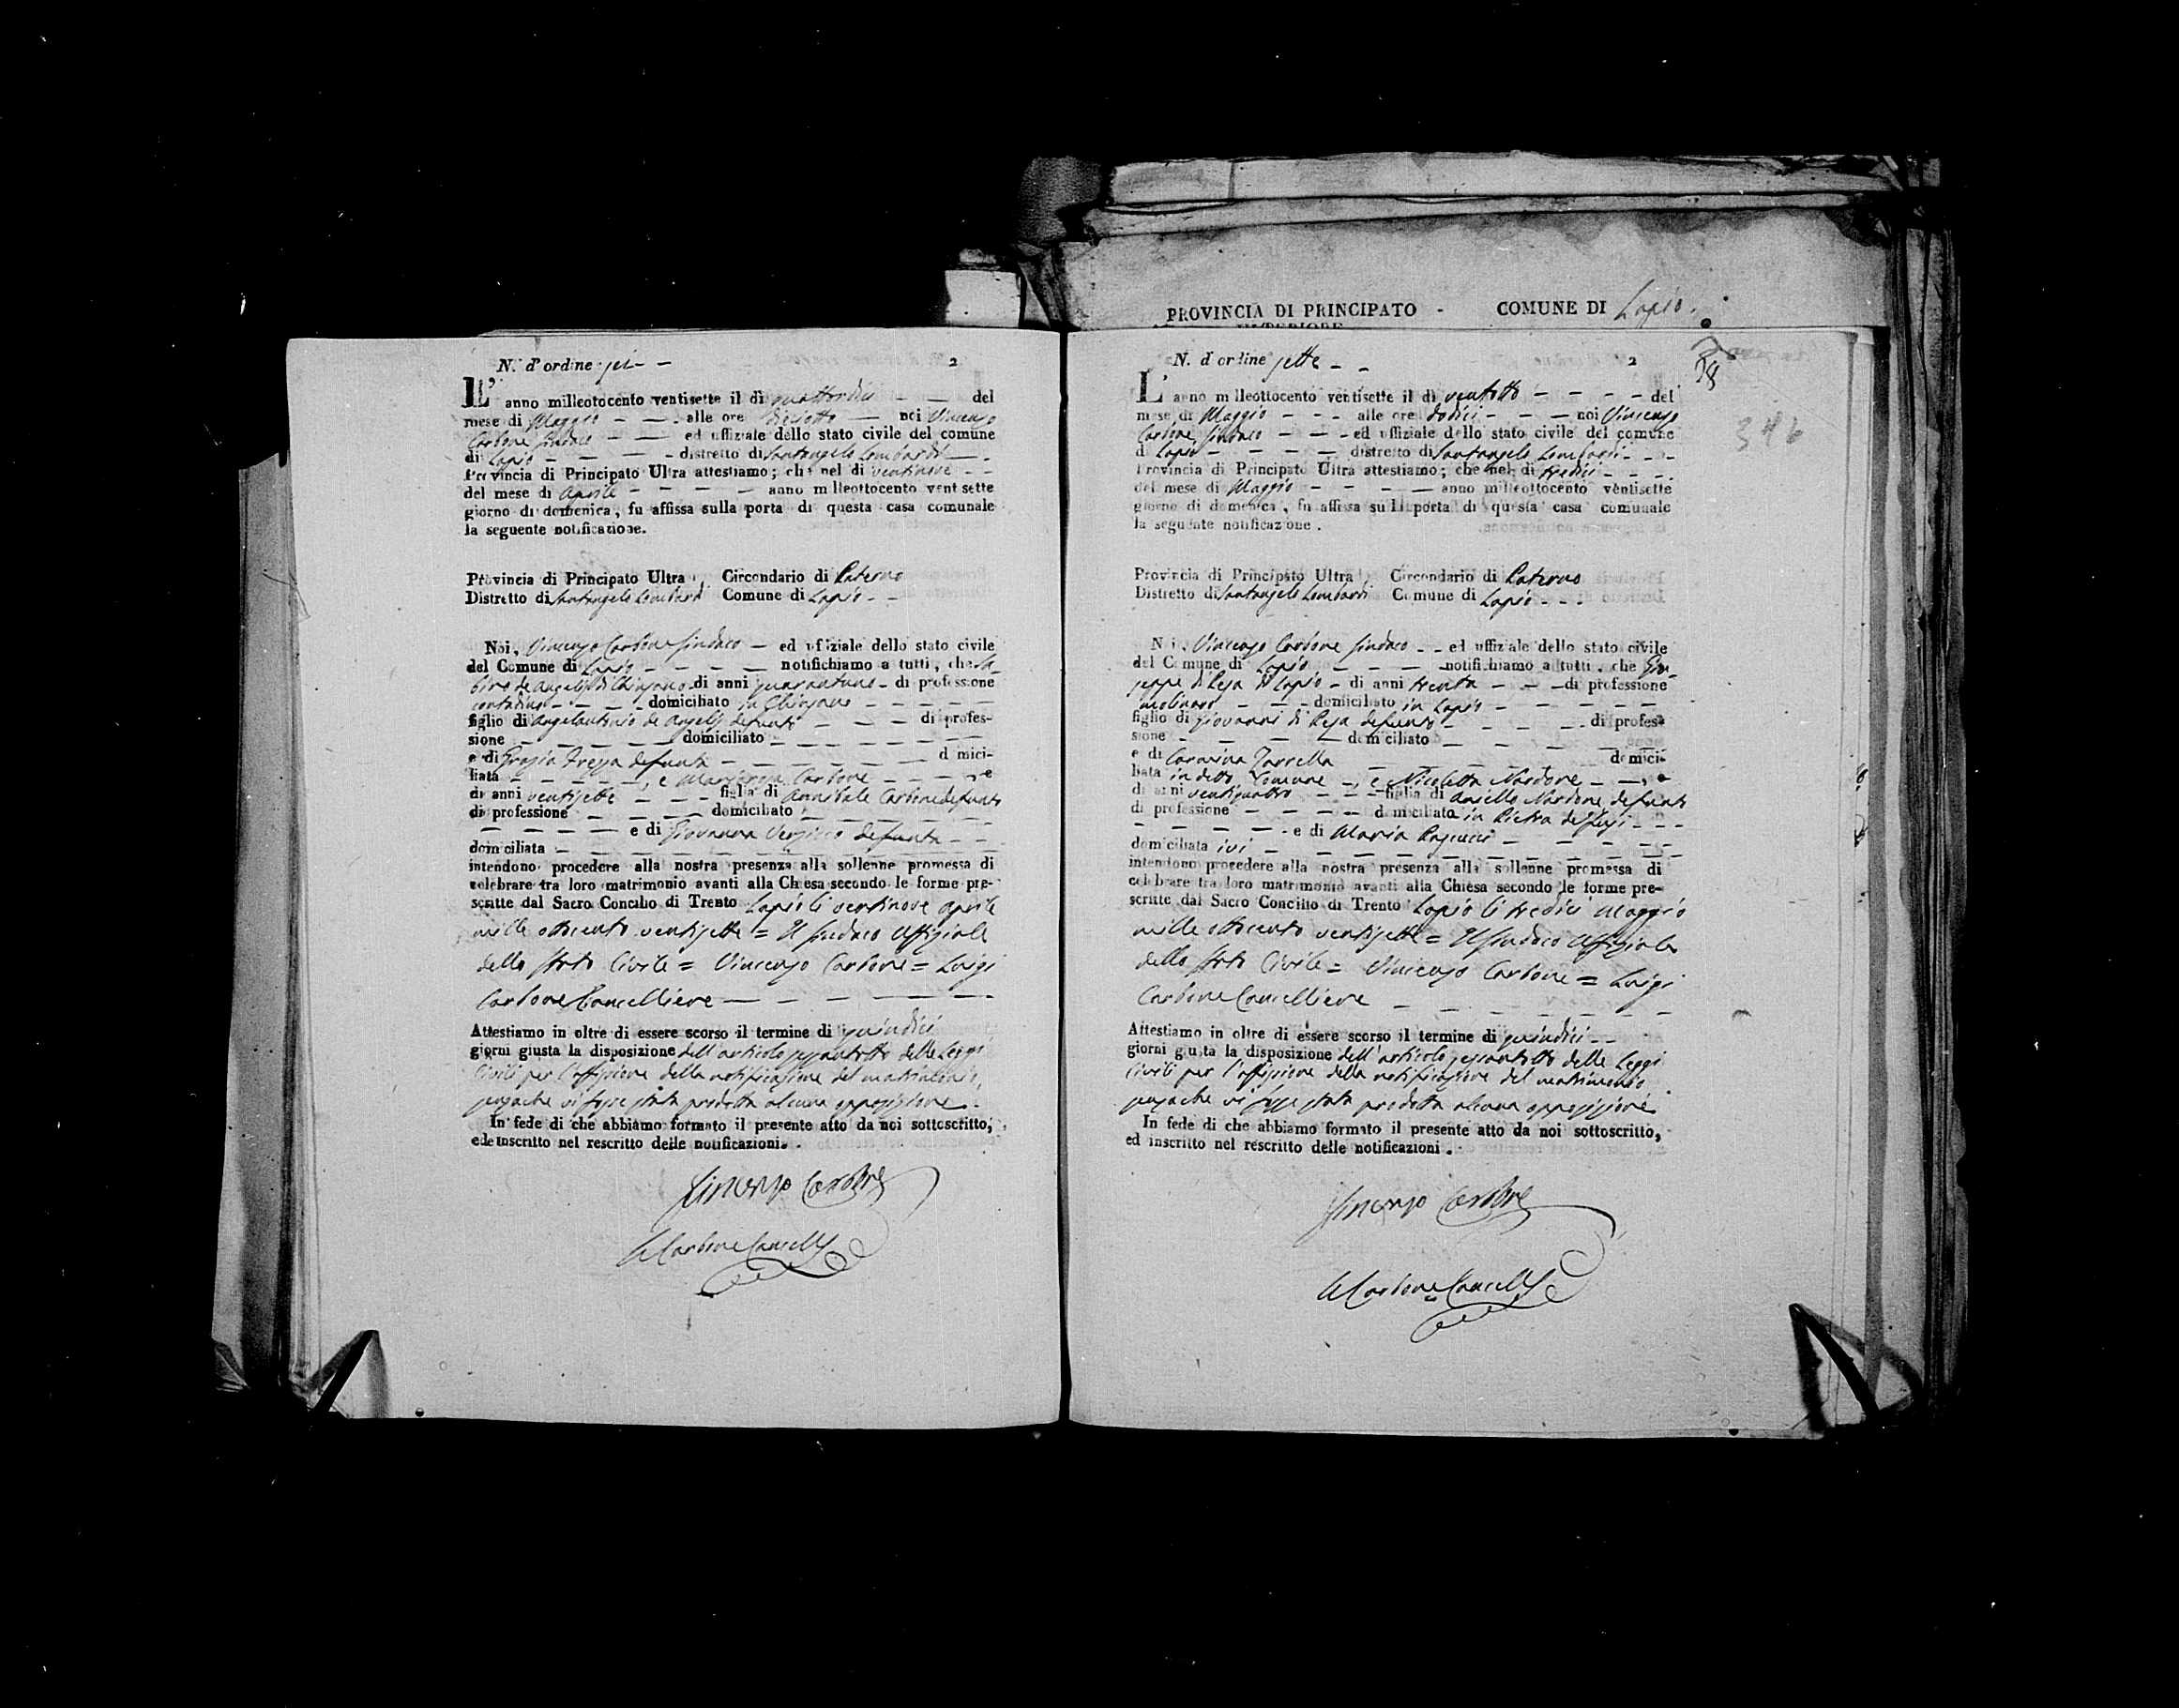 PROVINCIA DI PRINCIPATO - COMUNE DI Lapio.
N.° d'ordine sei - - 2
L'anno milleottocento ventisette il dì quattordici - - del
mese di Maggio - - alle ore diciotto - noi Vincenzo
Carbone Sindaco - - ed uffiziale dello stato civile del comune
di Lapio - - - - distretto di Santangelo Lombardi - .
Provincia di Principato Ultra attestiamo; che nel di ventinove - -
del mese di Aprile - - - - anno milleottocento ventisette
giorno di domenica, fu affissa sulla porta di questa casa comunale
la seguente notificazione.
Provincia di Principato Ultra, Circondario di Paterno
Distretto di Santangelo Lombardi Comune di Lapio - -
Noi, Vincenzo Carbone Sindaco - ed uffiziale dello stato civile
del Comune di Lapio - - - - notifichiamo a tutti, che
de Angelis di Chiusano di anni quarantuno - di professione
contadino - - - domiciliato in Chiusano - - - - -
figlio di Angelantonio de Angelis defunto - - - di profes-
sione - - - - - domiciliato - - - - - - -
e di Grazia Frezza defunta - - - - - - domici-
liata - - - - -, e Carbone - - - -, e
di anni ventisette - - - figlia di Annibale Carbone defunto
di professione - - - - domiciliato - - - - - -
- - - - - e di Giovanna defunta - -
domiciliata - - - - - - - - - - -
intendono procedere alla nostra presenza alla sollenne promessa di
celebrare tra loro matrimonio avanti alla Chiesa secondo le forme pre-
scritte dal Sacro Concilio di Trento Lapio li ventinove aprile
mille ottocento ventisette = Il Sindaco Uffiziale
dello stato Civile = Vincenzo Carbone = Luigi
Carbone Cancelliere - - - - - - -
Attestiamo in oltre di essere scorso il termine di quindici
giorni giusta la disposizione dell'articolo sessantotto delle Leggi
Civili per l'affissione della notificazione del matrimonio,
senzache vi fosse stata prodotta alcuna opposizione.
In fede di che abbiamo formato il presente atto da noi sottoscritto,
ed inscritto nel rescritto delle notificazioni.
Vincenzo Carbone
Carbone Cancell
N. d'ordine sette - - 2
38
346
L'anno milleottocento ventisette il dì ventotto - - - - del
mese di Maggio - - - alle ore dodici - - - noi Vincenzo
Carbone Sindaco - - - ed uffiziale dello stato civile del comune
di Lapio - - - - distretto di Santangelo Lombardi - - -
Provincia di Principato Ultra attestiamo; che nel di tredici - - -
del mese di Maggio - - - - anno milleottocento ventisette
giorno di domenica, fu affissa sulla porta di questa casa comunale
la seguente notificazione.
Provincia di Principato Ultra Circondario di Paterno
Distretto di Santangelo Lombardi Comune di Lapio - - -
Noi, Vincenzo Carbone Sindaco - - ed uffiziale dello stato civile
del Comune di Lapio - - - - notifichiamo a tutti, che Giu-
seppe di Lapio - di anni trenta - - - di professione
molinaro - - - domiciliato in Lapio - - - - -
figlio di Giovanni di defunto - - - - - di profes-
sione - - - - - domiciliato - - - - - -
e di Carmina Zarrella - - - - - - domici-
liata in detto Comune -, e Nicoletta Nardone - - -, e
di anni ventiquattro - - - figlia di Aniello Nardone defunto
di professione - - - - domiciliato in Pietra defusi - - -
- - - - - e di Maria - - - - -
domiciliata ivi - - - - - - - - - -
intendono procedere alla nostra presenza alla sollenne promessa di
celebrare tra loro matrimonio avanti alla Chiesa secondo le forme pre-
scritte dal Sacro Concilio di Trento Lapio li tredici Maggio
mille ottocento ventisette = Il Sindaco Uffiziale
dello stato Civile = Vincenzo Carbone = Luigi
Carbone Cancelliere - - - - - - -
Attestiamo in oltre di essere scorso il termine di quindici - -
giorni giusta la disposizione dell'articolo sessantotto delle Leggi
Civili per l'affissione della notificazione del matrimonio
senzache vi fosse stata prodotta alcuna opposizione
In fede di che abbiamo formato il presente atto da noi sottoscritto,
ed inscritto nel rescritto delle notificazioni.
Vincenzo Carbone
Carbone Cancell